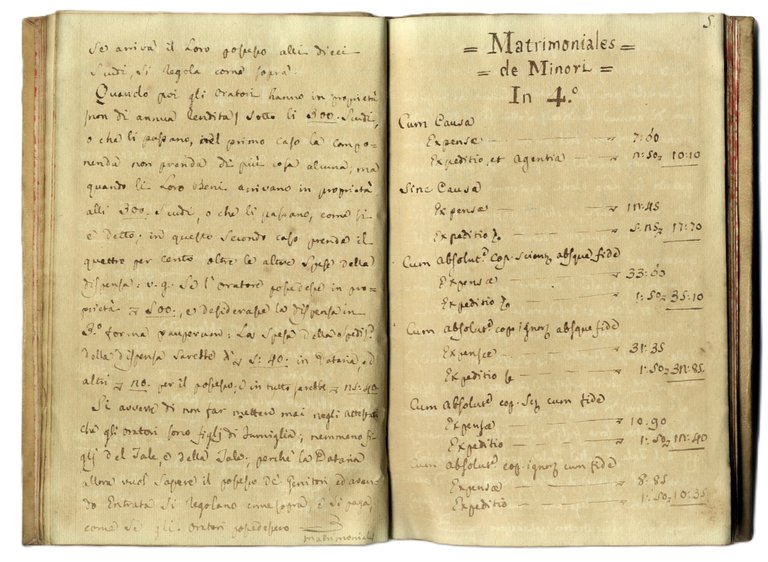 se arriva il Loro possesso alli dieci
Scudi, si regola come sopra.
Quando poi gli Oratori hanno in proprietà
(non di annua rendita) sotto li 300. Scudi,
o che li passano, nel primo caso la Compo-
nenda non prenda di più cosa alcuna, ma
quando li Loro Beni arrivano in proprietà
alli 300. Scudi, o che li passano, come si
è detto: in questo Secondo caso prende il
quattro per cento oltre le altre Spese della
dispensa: v. g. Se l'Oratore possedesse in pro-
prietà 500:, e desiderasse la dispensa in
forma pauperum: La Spesa della
della dispensa sarebbe di 5: 40: in Dataria, ed
altri per il possesso, e in tutto sarebbe
Si avverte di non far mettere mai negli Attestati
che gli Oratori sono figli di Famiglia; nemmeno fi-
gli del Tale, e della Tale; perchè la Dataria
allora vuol Sapere il possesso de' Genitori ed aven-
do Entrata Si regolano come sopra, e Si paga
come Se gli Oratori possedessero
matrimoniales
5
= Matrimoniales =
= de Minori =
In 4.º
Cum Causa
Expensæ 7:60
Expeditio et Agentia 10:10
Sine Causa
Expensæ
Expeditio 17:70
Cum Absolut.e cop. scienz absque fide
Expensæ 33:60
Expeditio 1:50 35:10
Cum Absolut.e cop. ignorz absque fide
Expensæ 31:35
Expeditio 1:50
Cum Absolut.e cop. Scz cum fide
Expensæ 10:90
Expeditio 1:50
Cum absolut.e cop. ignorz cum fide
Expensæ 8:85
Expeditio 1:50 10:35